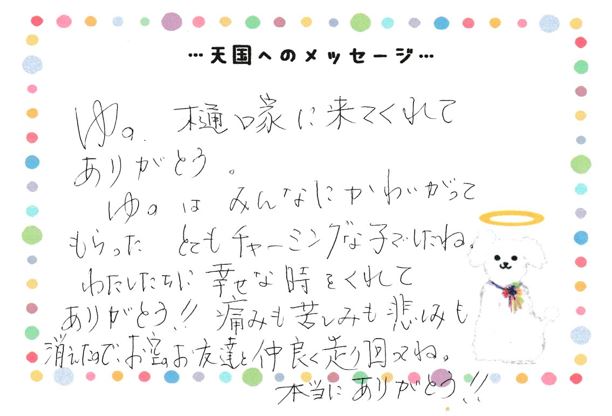 …天国へのメッセージ…
ゆの、樋口家に来てくれて
ありがとう。
ゆのは みんなにかわいがって
もらった とてもチャーミングな子でしたね。
わたしたちに 幸せな時をくれて
ありがとう!! 痛みも苦しみも悲しみも
消えたので、お空のお友達と仲良く走り回ってね。
本当に ありがとう!!